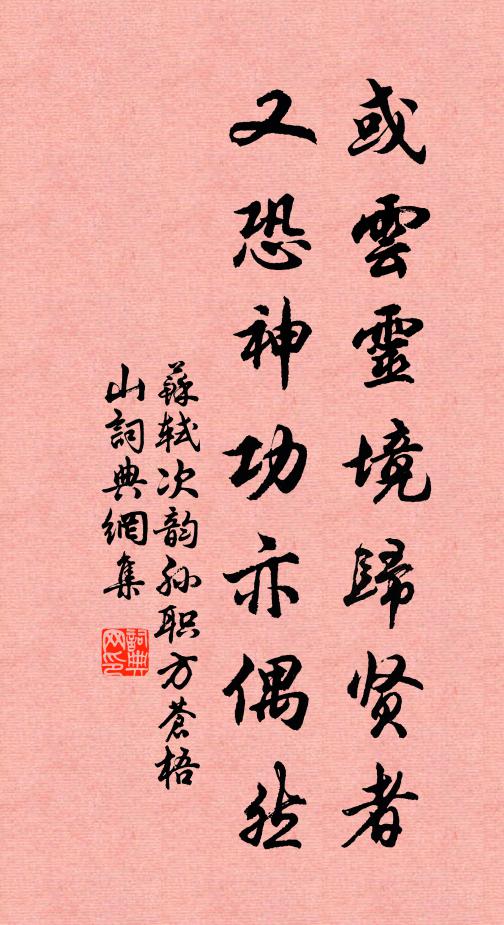 或雲靈境歸贤者
又恐神功亦偶然
蘇轼次韵孙职方蒼梧
山詞典網集
詞典
网印